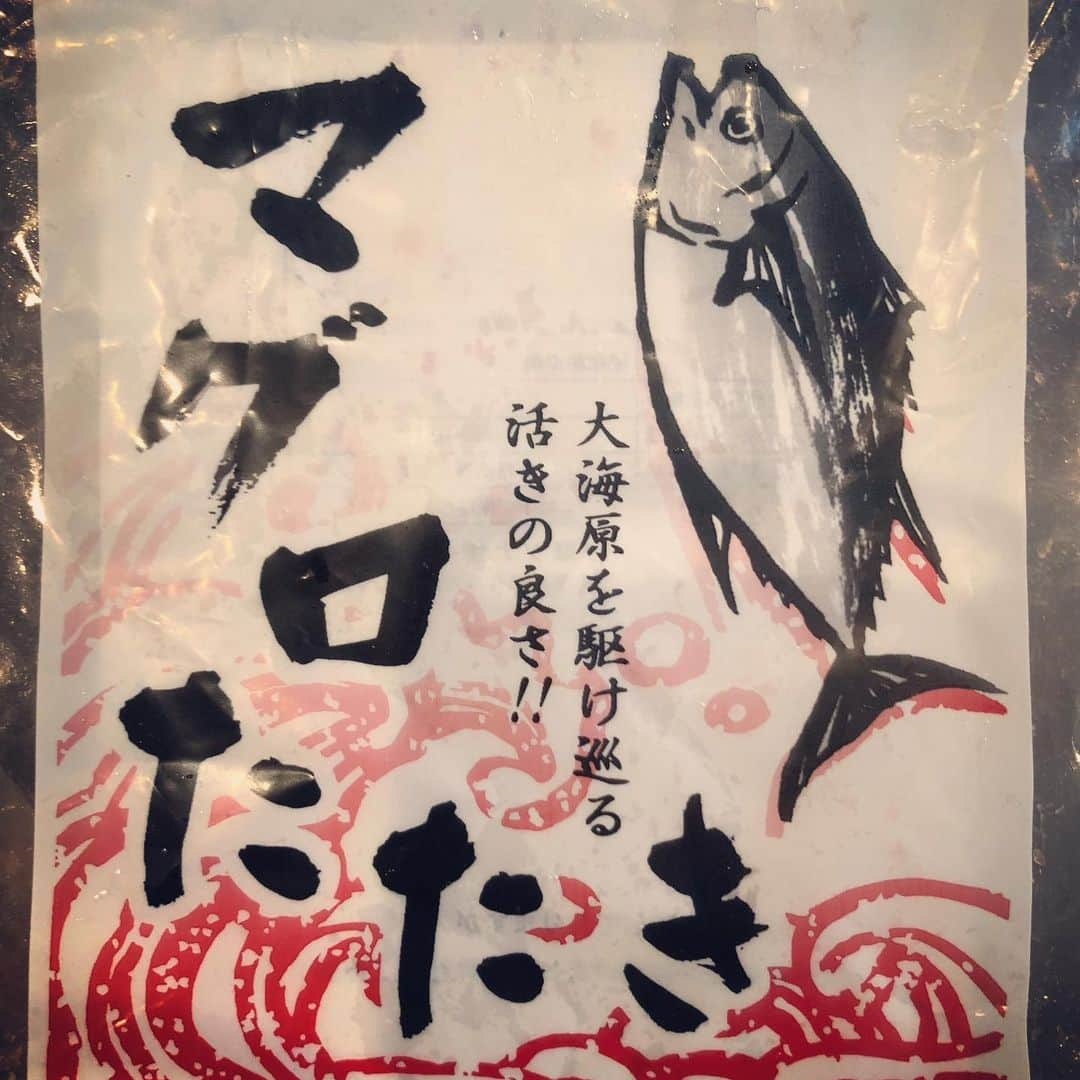 マグロ
たたき
大海原を駆け巡る
活きの良さ!!